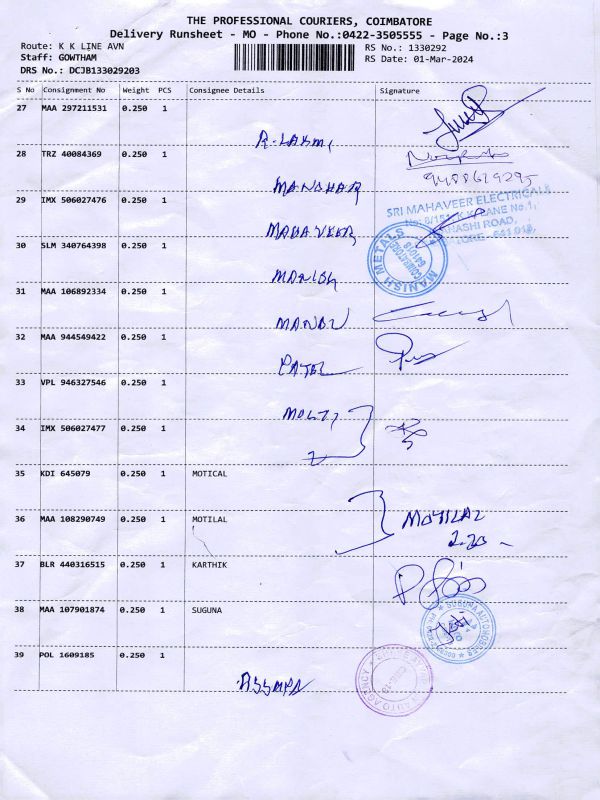 THE PROFESSIONAL COURIERS, COIMBATORE
Delivery Runsheet - MO - Phone No.:0422-3505555 - Page No.:3
Route: K K LINE AVN RS No.: 1330292
Staff: GOWTHAM RS Date: 01-Mar-2024
DRS No.: DCJB133029203
S No Consignment No Weight PCS Consignee Details Signature
27 MAA 297211531 0.250 1
R. LAXMI
28 TRZ 40084369 0.250 1
MANOHAR
29 IMX 506027476 0.250 1
SRI MAHAVEER ELECTRICALS
MAHAVEER
30 SLM 340764398 0.250 1
MANISH METALS
COIMBATORE
641018
MANISH
31 MAA 106892334 0.250 1
32 MAA 944549422 0.250 1
PATEL
33 VPL 946327546 0.250 1
34 IMX 506027477 0.250 1
35 KDI 645079 0.250 1 MOTICAL
36 MAA 108290749 0.250 1 MOTILAL
MOTILAL
2.20
37 BLR 440316515 0.250 1 KARTHIK
38 MAA 107901874 0.250 1 SUGUNA
SUGUNA AUTOMOBILES
39 POL 1609185 0.250 1
AUTO AGENCY